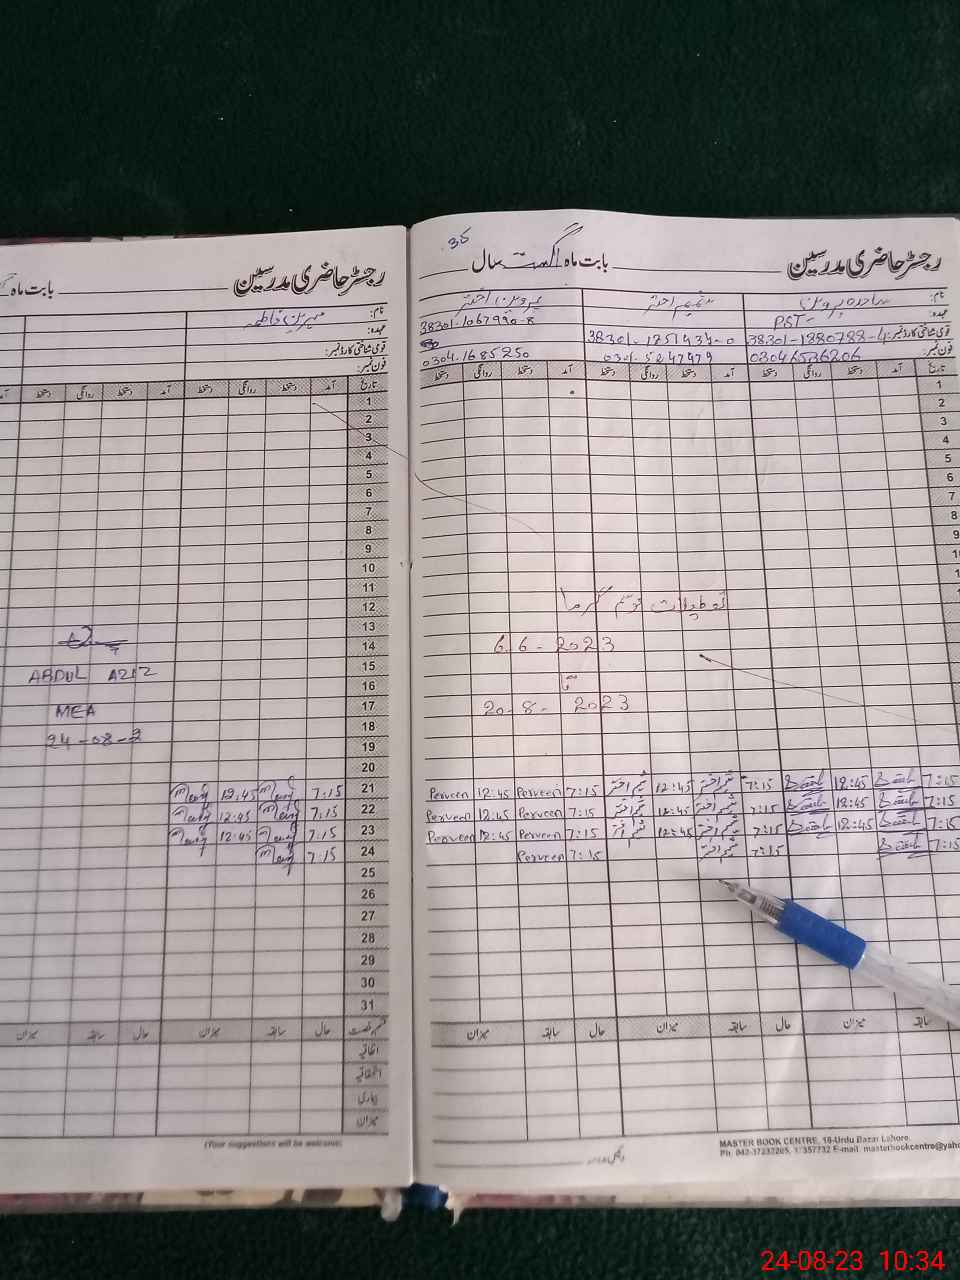 رجسٹر حاضری مدرسین بابت ماہ اگست سال
35
نام: ساجدہ پروین شمیم اختر پروین اختر
عہدہ: PST
قومی شناختی کارڈ نمبر: 38301-1880788-4 38301-1251434-0 38301-1067990-8
فون نمبر: 0304 1685250
تاریخ آمد دستخط روانگی دستخط آمد دستخط روانگی دستخط آمد دستخط روانگی دستخط
1
2
3
4
5
6
7
8
9
10
تعطیلات موسم گرما
6.6-2023
تا
20-8-2023
7:15 12:45 7:15 شمیم اختر 12:45 شمیم اختر 7:15 Perveen 12:45 Perveen
7:15 12:45 7:15 شمیم اختر 12:45 شمیم اختر 7:15 Perveen 12:45 Perveen
7:15 12:45 7:15 شمیم اختر 12:45 شمیم اختر 7:15 Perveen 12:45 Perveen
7:15 7:15 شمیم اختر 7:15 Perveen
سابقہ میزان حال سابقہ میزان حال سابقہ میزان
MASTER BOOK CENTRE, 18-Urdu Bazar Lahore.
رجسٹر حاضری مدرسین بابت ماہ
نام: مہرین فاطمہ
عہدہ:
قومی شناختی کارڈ نمبر:
فون نمبر:
تاریخ آمد دستخط روانگی دستخط آمد دستخط روانگی دستخط آمد
1
2
3
4
5
6
7
8
9
10
11
12
13
14
15 ABDUL AZIZ
16
17 MEA
18
19 24-08-
20
21 7:15 12:45
22 7:15 12:45
23 7:15 12:45
24 7:15
25
26
27
28
29
30
31
قسم رخصت حال سابقہ میزان حال سابقہ میزان
اتفاقیہ
استحقاقیہ
بیماری
میزان
(Your suggestions will be welcome)
24-08-23 10:34